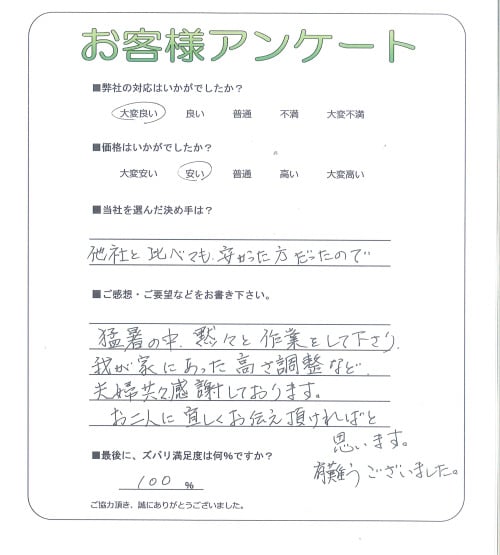 お客様アンケート
■弊社の対応はいかがでしたか?
大変良い 良い 普通 不満 大変不満
■価格はいかがでしたか?
大変安い 安い 普通 高い 大変高い
■当社を選んだ決め手は?
他社と比べても、安かった方だったので
■ご感想・ご要望などをお書き下さい。
猛暑の中、黙々と作業をして下さり、
我が家にあった高さ調整など、
夫婦共々感謝しております。
お二人に宜しくお伝え頂ければと
思います。
有難うございました。
■最後に、ズバリ満足度は何%ですか?
100 %
ご協力頂き、誠にありがとうございました。